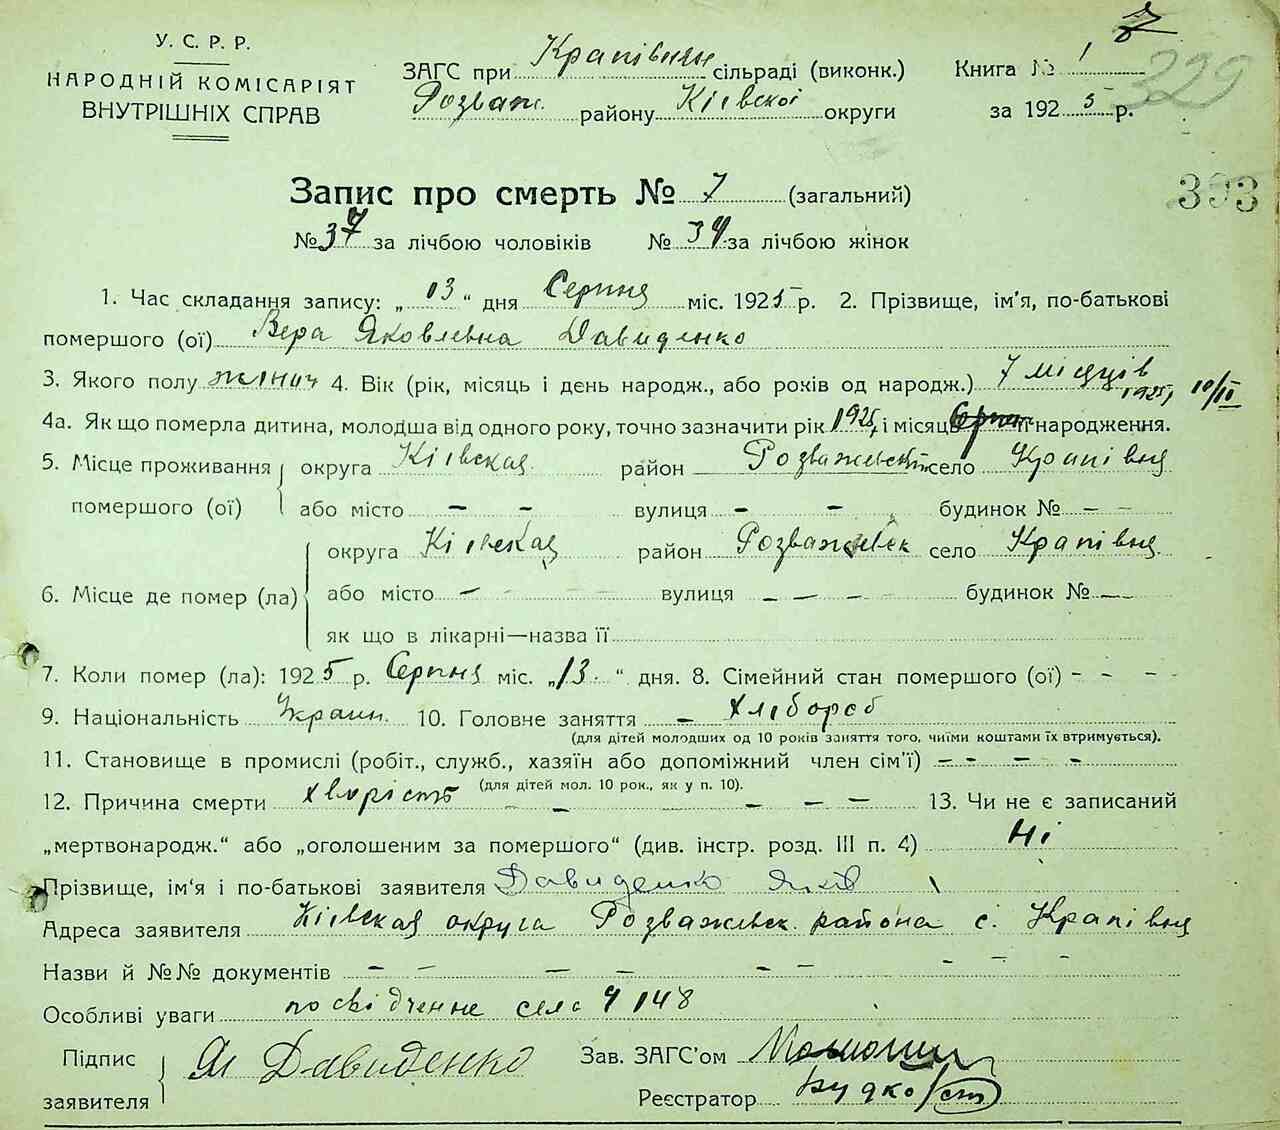 У. С. Р. Р.
НАРОДНІЙ КОМІСАРІЯТ
ВНУТРІШНІХ СПРАВ
ЗАГС при Крапівнян сільраді (виконк.)
Розваж. району Кіевскоі округи
Книга № 1
за 1925 р.
7
329
393
Запис про смерть № 7 (загальний)
№ 37 за лічбою чоловіків № 34 за лічбою жінок
1. Час складання запису: „13“ дня Серпня міс. 1925 р. 2. Прізвище, ім’я, по-батькові
помершого (ої) Вера Яковлевна Давиденко
3. Якого полу жіноч 4. Вік (рік, місяць і день народж., або років од народж.) 7 місяців
1925, 10/II
4а. Як що померла дитина, молодша від одного року, точно зазначити рік 1925, і місяць народження.
5. Місце проживання помершого (ої) округа Кіевская район Розважевск село Крапівня
або місто - - вулиця - - будинок № - -
6. Місце де помер (ла) округа Кіевская район Розважевск село Крапівня
або місто - - вулиця - - - - будинок № - -
як що в лікарні—назва її
7. Коли помер (ла): 1925 р. Серпня міс. „13.“ дня. 8. Сімейний стан помершого (ої) - - - -
9. Національність Украин. 10. Головне заняття - хлібороб
(для дітей молодших од 10 років заняття того, чиїми коштами їх втримується).
11. Становище в промислі (робіт., служб., хазяїн або допоміжний член сім’ї) - - - -
(для дітей мол. 10 рок., як у п. 10).
12. Причина смерти хворість - - - - 13. Чи не є записаний
„мертвонародж.“ або „оголошеним за помершого“ (див. інстр. розд. III п. 4) Ні
Прізвище, ім’я і по-батькові заявителя Давиденко Яків
Адреса заявителя Кіевская округа Розважевск. района с. Крапівня
Назви й №№ документів - - - - - - - - -
Особливі уваги посвідченне села 4 148
Підпис заявителя Я Давиденко
Зав. ЗАГС’ом
Реєстратор Будко